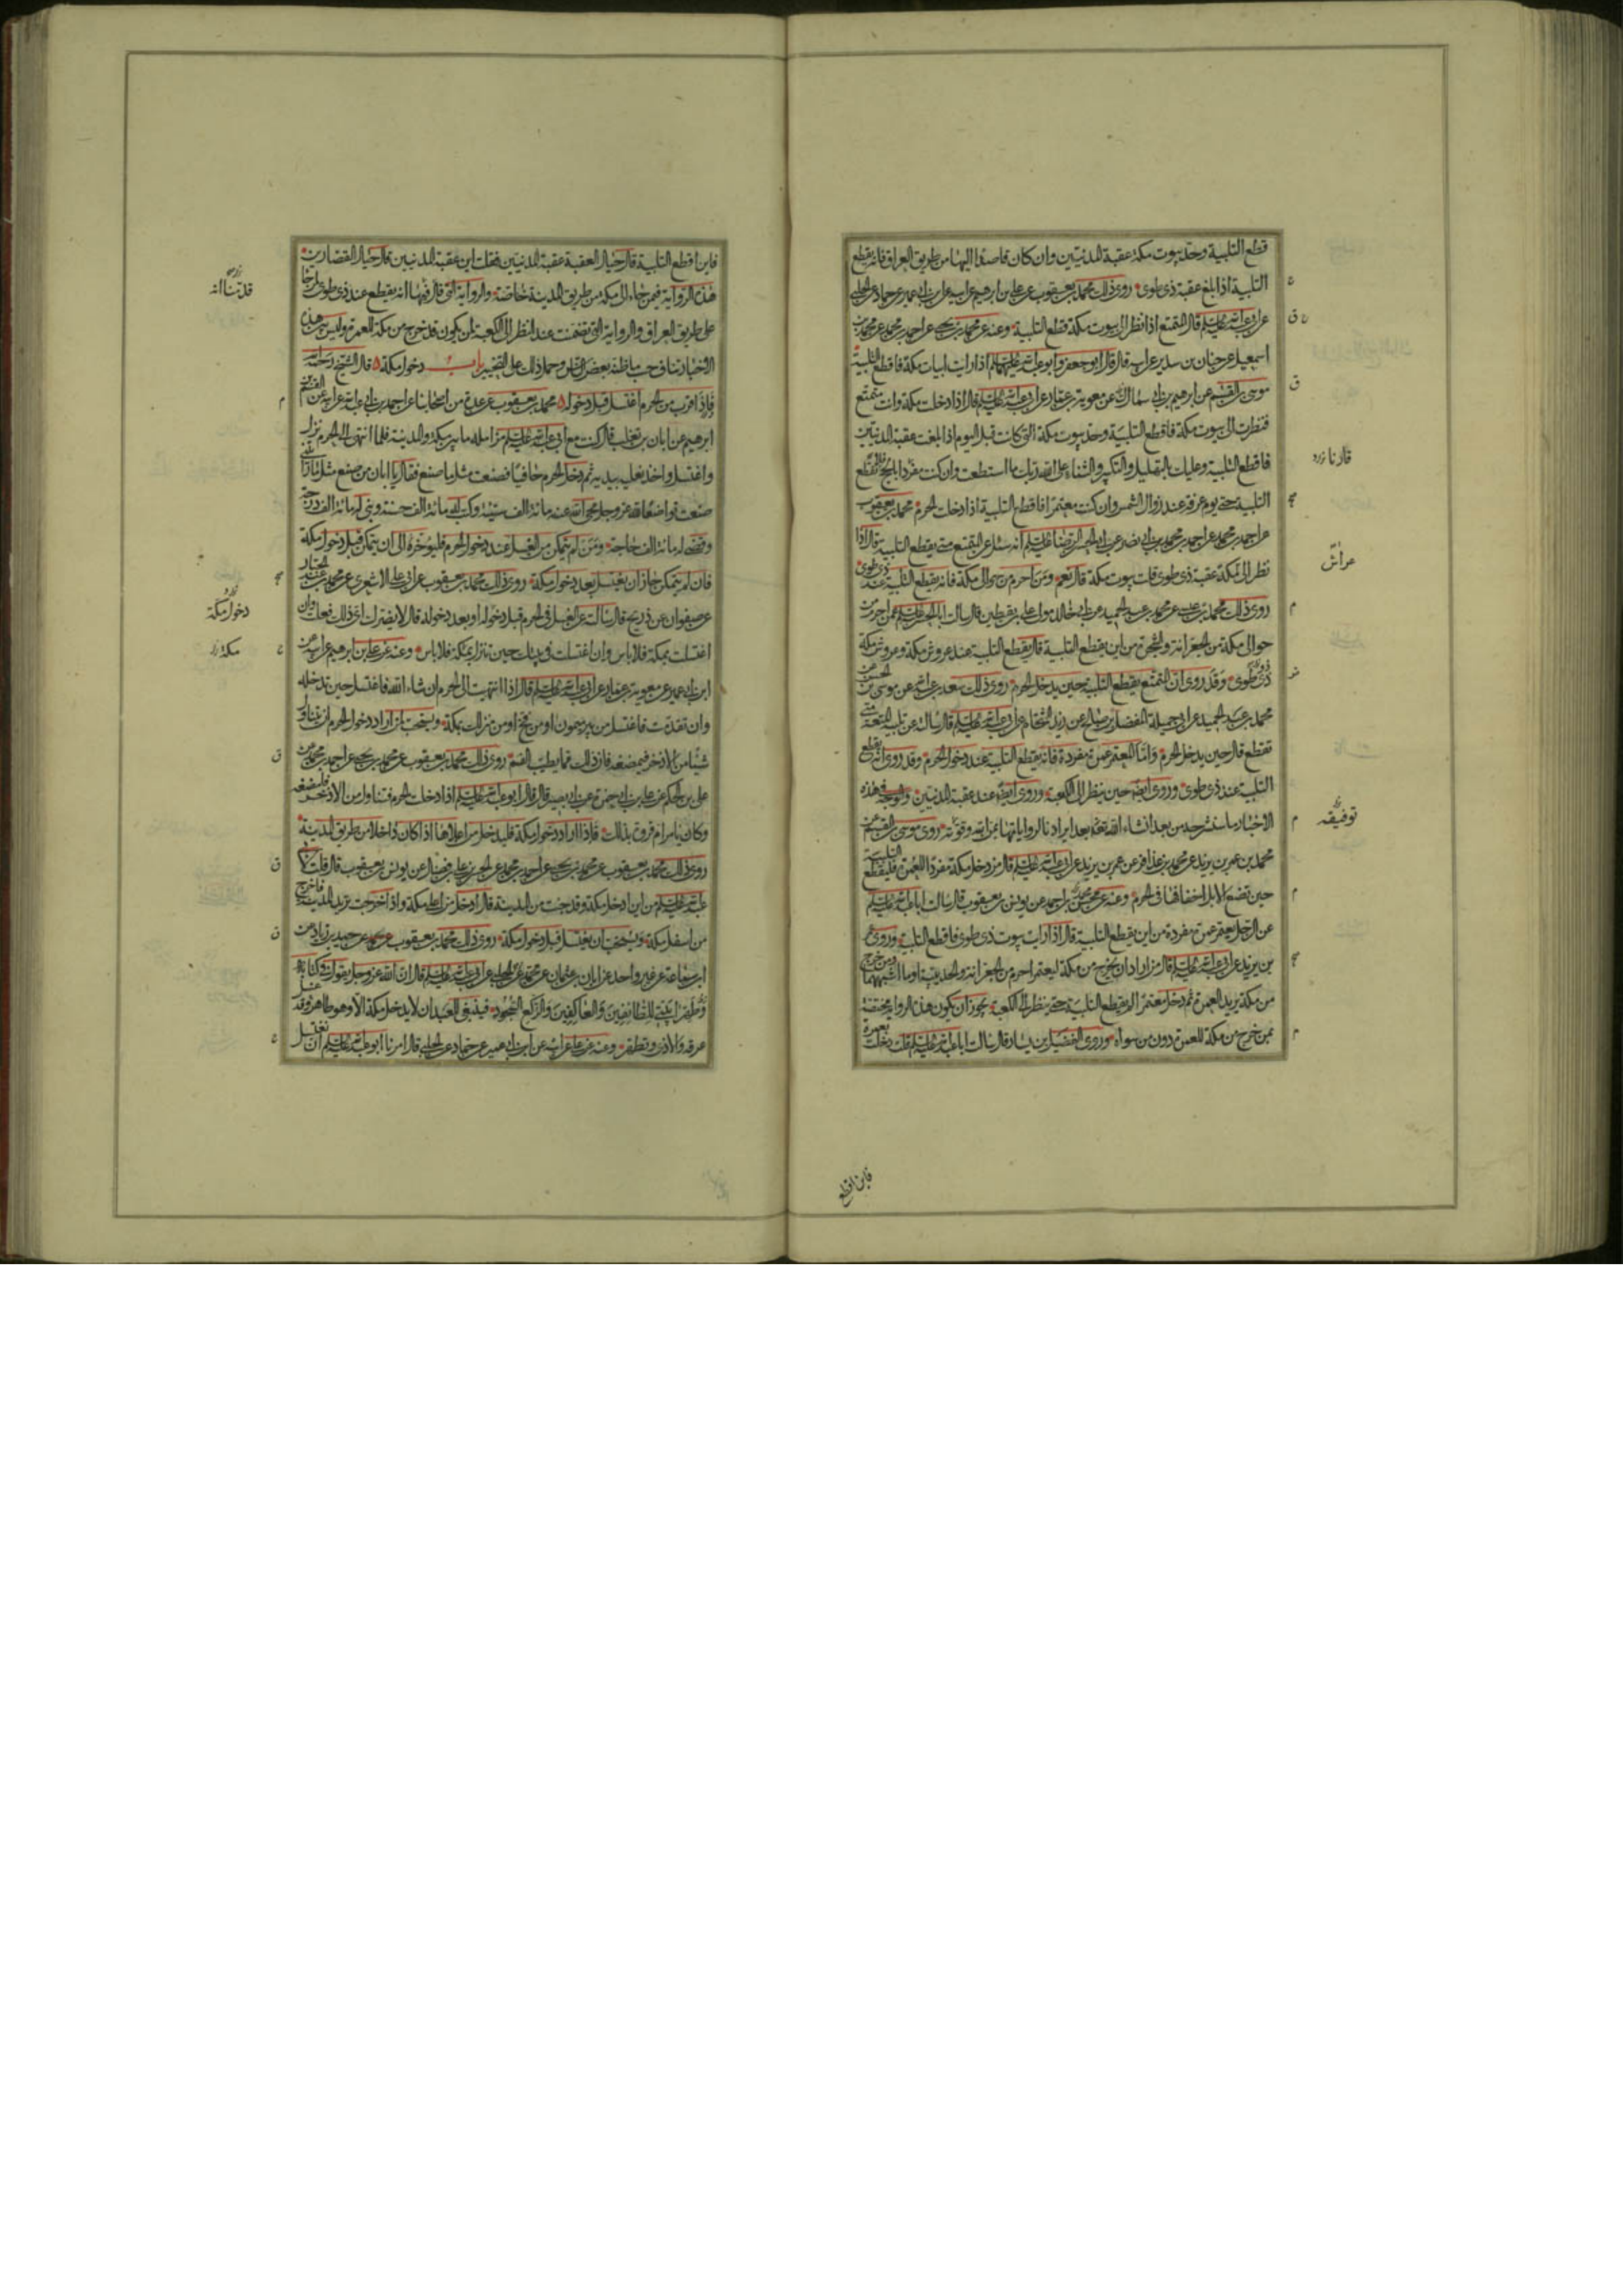 قطع التلبية وحد بيوت مكة عقبة المدنيين وان كان قاصدا اليها من طريق العراق فانه يقطع
التلبية اذا بلغ عقبة ذى طوى روى ذلك محمد بن يعقوب عن على بن ابرهيم عن ابيه عن ابن ابى عمير عن حماد عن الحلبى
عن ابى عبد الله عليه السلم قال المتمتع اذا نظر الى بيوت مكة قطع التلبية وعنه عن محمد بن يحيى عن احمد بن محمد عن محمد بن
اسمعيل عن حنان بن سدير عن ابيه قال قال ابو جعفر وابو عبد الله عليهما السلم اذا رايت ابيات مكة فاقطع التلبية
موسى بن القسم عن ابرهيم بن ابى سمال عن معوية بن عمار عن ابى عبد الله عليه السلم قال اذا دخلت مكة وانت متمتع
فنظرت الى بيوت مكة فاقطع التلبية وحد بيوت مكة التى كانت قبل اليوم اذا بلغت عقبة المدنيين
فاقطع التلبية وعليك بالتهليل والتكبير والثناء على الله ربك ما استطعت وان كنت مفردا بالحج فلا تقطع
التلبية حتى يوم عرفة عند زوال الشمس وان كنت معتمرا فاقطع التلبية اذا دخلت الحرم محمد بن يعقوب
عن احمد بن محمد عن احمد بن محمد بن ابى نصر عن ابى الحسن الرضا عليه السلم انه سئل عن المتمتع متى يقطع التلبية قال اذا
نظر الى مكة عقبة ذى طوى قلت بيوت مكة قال نعم ومن احرم من حوالى مكة فانه يقطع التلبية عند ذى طوى
روى ذلك محمد بن عيسى عن محمد بن عبد الحميد عن ابى خالد مولى على بن يقطين قال سالت ابا الحسن عليه السلم عمن احرم من
حوالى مكة من الجعرانة والشجرة من اين يقطع التلبية قال يقطع التلبية عند عروش مكة وعروش مكة
ذى طوى وقد روى ان المتمتع يقطع التلبية حين يدخل الحرم روى ذلك سعد بن عبد الله عن موسى بن الحسن عن
محمد بن عبد الحميد عن ابى جميلة المفضل بن صالح عن زيد الشحام عن ابى عبد الله عليه السلم قال سالت عن تلبية المتعة متى
تقطع قال حين يدخل الحرم واما المعتمر عمرة مفردة فانه يقطع التلبية عند دخول الحرم وقد روى انه يقطع
التلبية عند ذى طوى وروى ايضا حين ينظر الى الكعبة وروى ايضا عند عقبة المدنيين والوجه فى هذه
الاخبار ما سنشرحه من بعد انشاء الله تعم بعد ايرادنا لرواياتها بمن الله وقوته روى موسى بن القسم عن
محمد بن عمر بن يزيد عن محمد بن عذافر عن عمر بن يزيد عن ابى عبد الله عليه السلم قال من دخل مكة مفردا للعمرة فليقطع التلبية
حين تضع الابل اخفافها فى الحرم وعنه عن محسن بن احمد عن يونس بن يعقوب قال سالت ابا عبد الله عليه السلم
عن الرجل يعتمر عمرة مفردة من اين يقطع التلبية قال اذا رايت بيوت ذى طوى فاقطع التلبية وروى عمر
بن يزيد عن ابى عبد الله عليه السلم قال من اراد ان يخرج من مكة ليعتمر احرم من الجعرانة والحديبية او ما اشبههما ومن خرج
من مكة يريد العمرة ثم دخل معتمرا لم يقطع التلبية حتى ينظر الى الكعبة يجوز ان يكون هذه الرواية مختصة
بمن خرج من مكة للعمرة دون من سواه وروى الفضيل بن يسار قال سالت ابا عبد الله عليه السلم قلت دخلت بعمرة
قال نا
عراش
توفيقه
فاين اقطع
فاين اقطع التلبية قال حيال العقبة عقبة المدنيين فقلت اين عقبة المدنيين قال حيال القصارين
هذه الرواية فيمن جاء الى مكة من طريق المدينة خاصة والرواية التى قال فيها انه يقطع عند ذى طوى لمن جاء
على طريق العراق والرواية التى تضمنت عند النظر الى الكعبة لمن يكون قد خرج من مكة للعمرة وليس بين هذه
الاخبار تناف حسب ما ظنه بعض الناس وحمل ذلك على التخيير باب دخول مكة قال الشيخ رحمه الله
فاذا قرب من الحرم اغتسل قبل دخوله محمد بن يعقوب عن عدة من اصحابنا عن احمد بن ابى عبد الله عن ابيه عن القسم بن
ابرهيم عن ابان بن تغلب قال كنت مع ابى عبد الله عليه السلم مزامله ما بين مكة والمدينة فلما انتهى الى الحرم نزل
واغتسل واخذ نعليه بيديه ثم دخل الحرم حافيا فصنعت مثل ما صنع فقال يا ابان من صنع مثل ما رايتنى
صنعت تواضعا لله عز وجل محى الله عنه مائة الف سيئة وكتب له مائة الف حسنة وبنى له مائة الف درجة
وقضى له مائة الف حاجة ومن لم يتمكن من الغسل عند دخول الحرم فليؤخره الى ان يتمكن قبل دخول مكة
فان لم يتمكن جاز ان يغتسل بعد دخول مكة روى ذلك محمد بن يعقوب عن ابى على الاشعرى عن محمد بن عبد الجبار
عن صفوان عن ذريح قال سالت عن الغسل فى الحرم قبل دخوله او بعد دخوله قال لا يضرك اى ذلك فعلت وان
اغتسلت بمكة فلا باس وان اغتسلت فى بيتك حين تنزل بمكة فلا باس وعنه عن على بن ابرهيم عن ابيه عن
ابن ابى عمير عن معوية بن عمار عن ابى عبد الله عليه السلم قال اذا انتهيت الى الحرم ان شاء الله فاغتسل حين تدخله
وان تقدمت فاغتسل من بير ميمون او من فخ او من منزلك بمكة ويستحب لمن اراد دخول الحرم ان يتناول
شيئا من الاذخر فيمضغه فان ذلك مما يطيب الفم روى ذلك محمد بن يعقوب عن محمد بن يحيى عن احمد بن محمد عن
على بن الحكم عن على بن ابى حمزة عن ابى بصير قال قال ابو عبد الله عليه السلم اذا دخلت الحرم فتناول من الاذخر فامضغه
وكان يامر ام فروة بذلك فاذا اراد دخول مكة فليدخل من اعلاها اذا كان داخلا من طريق المدينة
روى ذلك محمد بن يعقوب عن محمد بن يحيى عن احمد بن محمد عن الحسن بن على بن فضال عن يونس بن يعقوب قال قلت لابى
عبد الله عليه السلم من اين ادخل مكة وقد جئت من المدينة قال ادخل من اعلى مكة واذا خرجت تريد المدينة فاخرج
من اسفل مكة ويستحب ان يغتسل قبل دخول مكة روى ذلك محمد بن يعقوب عن حميد بن زياد عن
ابن سماعة عن غير واحد عن ابان بن عثمان عن محمد الحلبى عن ابى عبد الله عليه السلم قال ان الله عز وجل يقول فى كتابه
وطهرا بيتى للطائفين والعاكفين والركع السجود فينبغى للعبد ان لا يدخل مكة الا وهو طاهر قد غسل
عرقه والاذى وتطهر وعنه عن على عن ابيه عن ابن ابى عمير عن حماد عن الحلبى قال امرنا ابو عبد الله عليه السلم ان نغتسل
قد بينا انه
دخول مكة
مكة